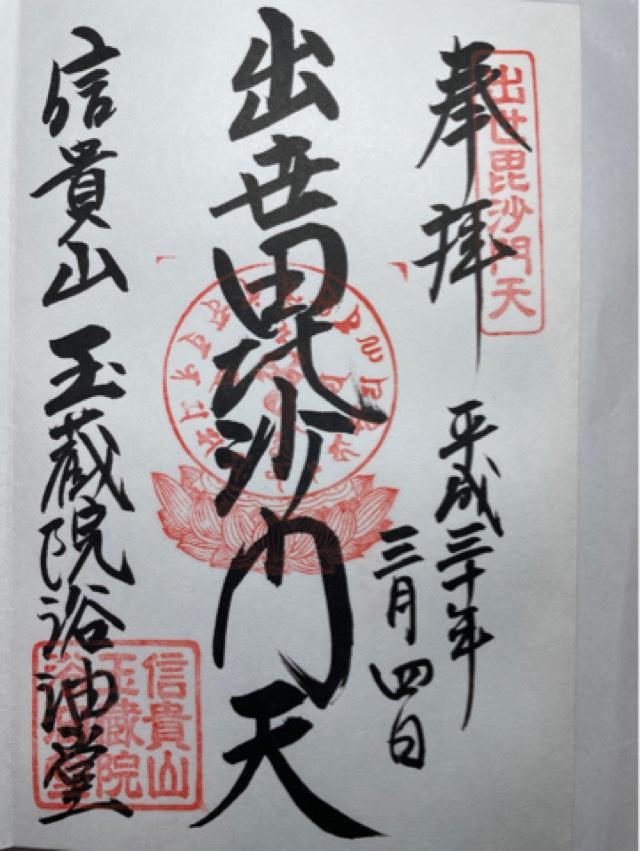 奉拝
出世毘沙門天
平成三十年
三月四日
出世毘沙門天
信貴山玉蔵院浴油堂
信貴山
玉蔵院
浴油堂